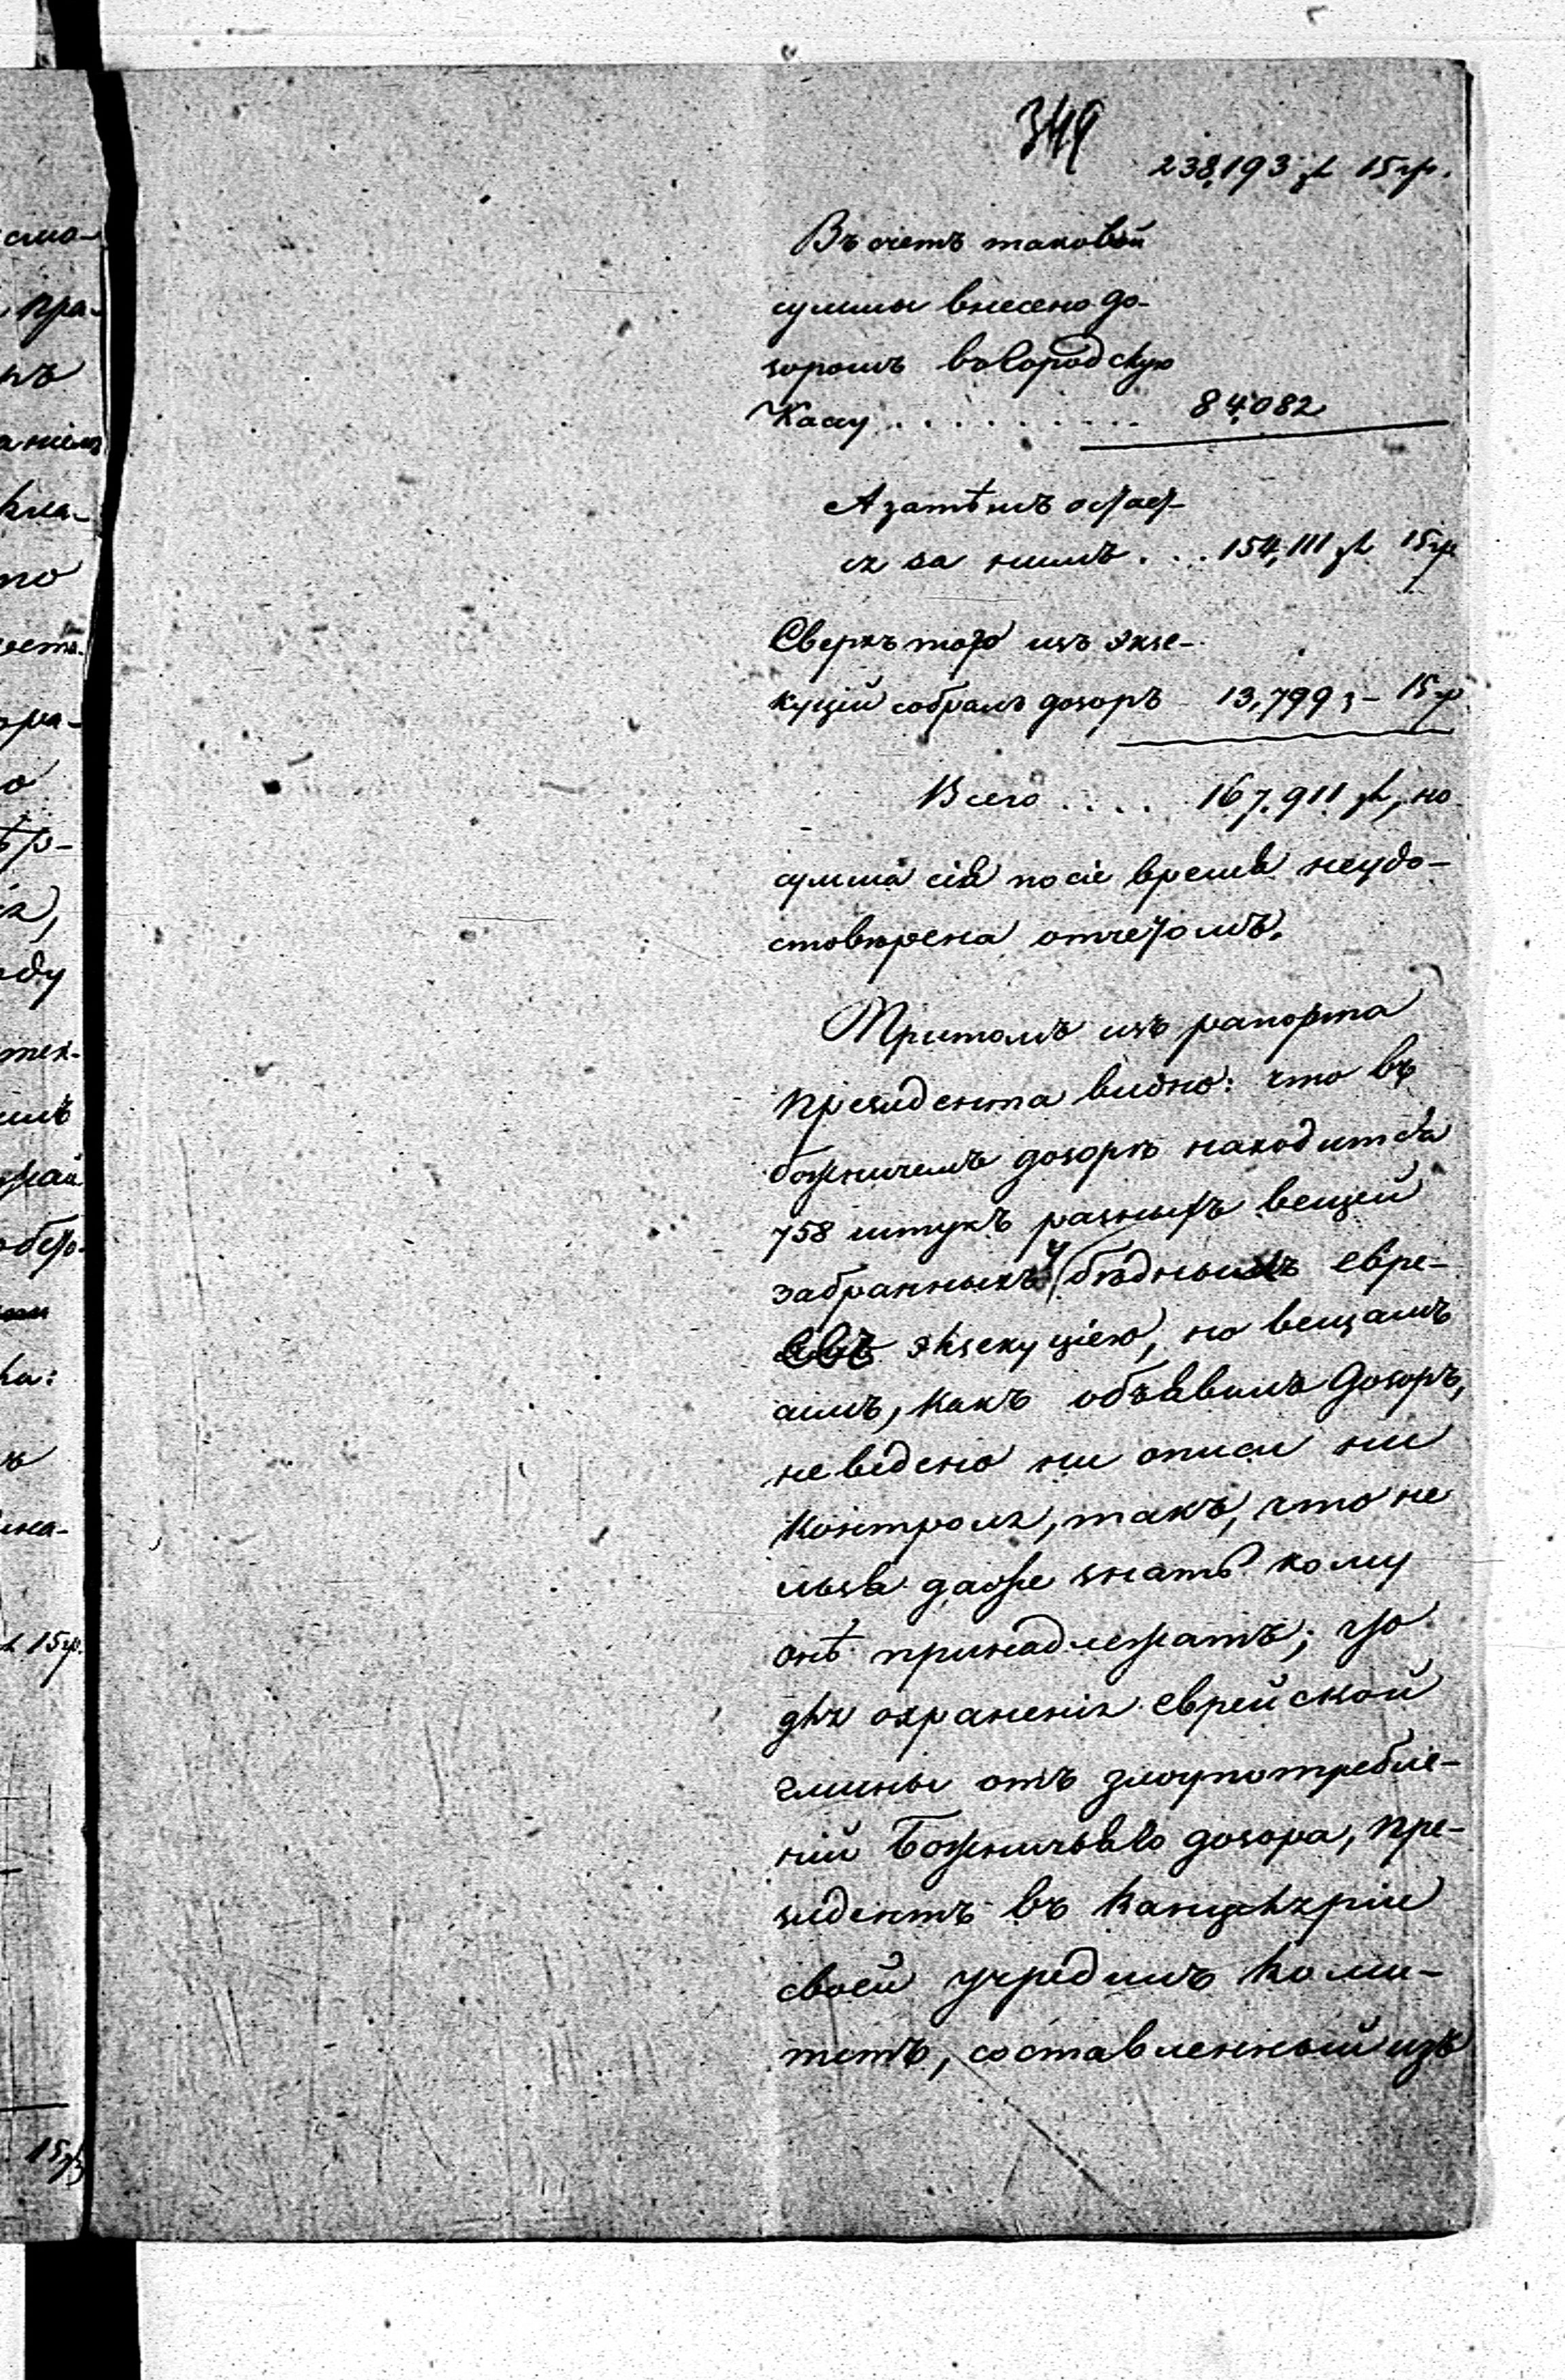 349
238,193 zł 15 гр.
Въ счетъ таковой
суммы внесено до-
зоромъ в городскую
Кассу . . . . . . . . . . 84,082
А затѣмъ остает-
ся за нимъ . . . 154,111 zł 15 гр
Сверхъ того изъ экзе-
куцій собралъ дозоръ 13,799 з – 15 гр
Всего . . . . 167,911 zł, но
сумма сія по сіе время неудо-
стовѣрена отчетомъ.
Притомъ изъ рапорта
президента видно: что въ
божничемъ дозорѣ находится
758 штукъ разныхъ вещей
забранныхъ у бѣдныхъ евре-
евъ экзекуціею, но вещамъ
симъ, какъ объявилъ Дозоръ,
не ведено ни описи ни
контроля, такъ, что не
льзя даже знать кому
онѣ принадлежатъ; что
для охраненія еврейской
гмины отъ злоупотребле-
ній Божничьяго дозора, пре-
зидентъ въ Канцеляріи
своей учредилъ Коми-
тетъ, составленный изъ